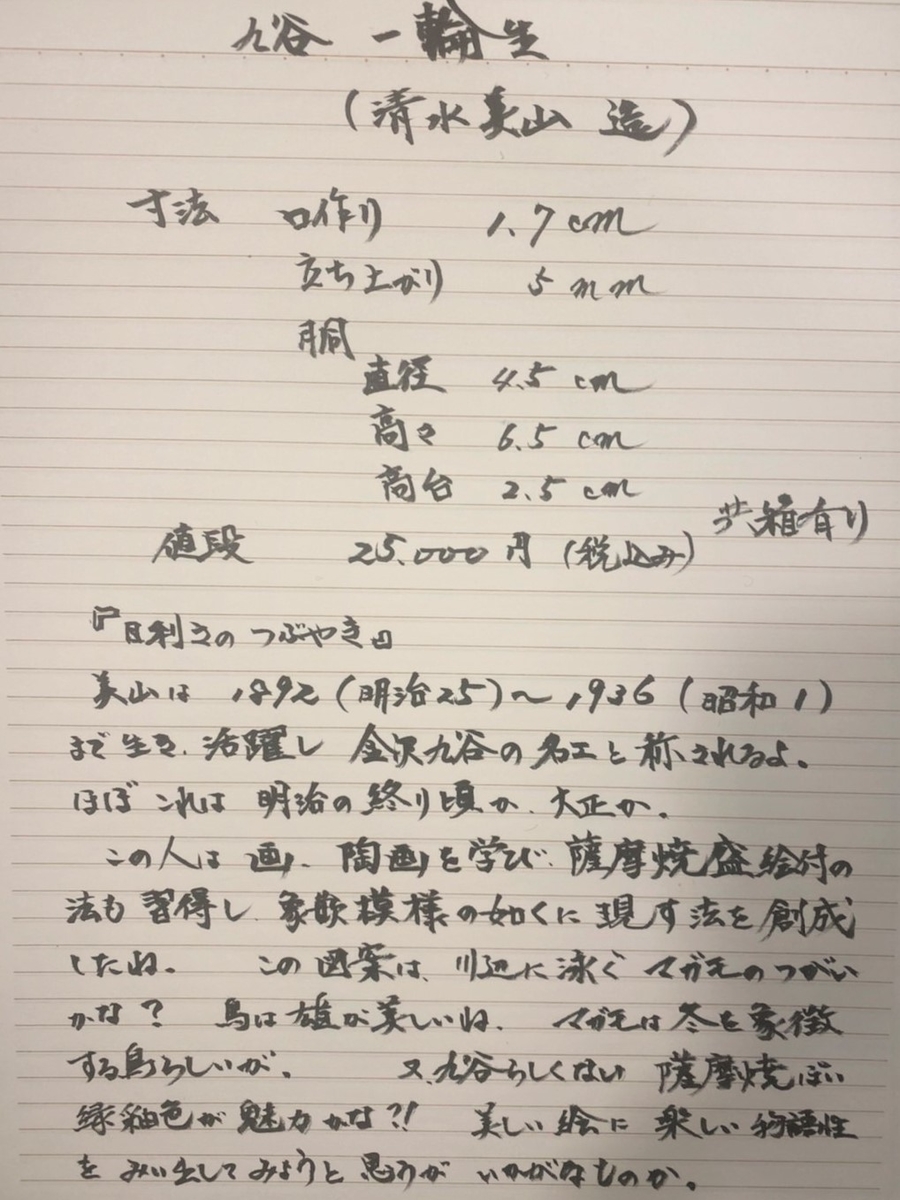 九谷 一輪生
(清水美山 造)
寸法 口作り 1.7cm
立ち上がり 5mm
胴
直径 4.5cm
高さ 6.5cm
高台 2.5cm
共箱有り
値段 25.000円(税込み)
『目利きのつぶやき』
美山は 1892(明治25)～1936(昭和1)
まで生き、活躍し 金沢九谷の名工と称されるよ。
ほぼこれは 明治の終り頃か、大正か。
この人は画、陶画を学び、薩摩焼盛絵付の
法も習得し、象嵌模様の如くに現す法を創成
したね。 この図案は、川辺に泳ぐ マガモのつがい
かな? 鳥は雄が美しいね、 マガモは冬を象徴
する鳥らしいが、 又、九谷らしくない 薩摩焼ぽい
緑釉色が魅力かな?! 美しい絵に 楽しい物語性
をみい出してみようと思うが いかがなものか。